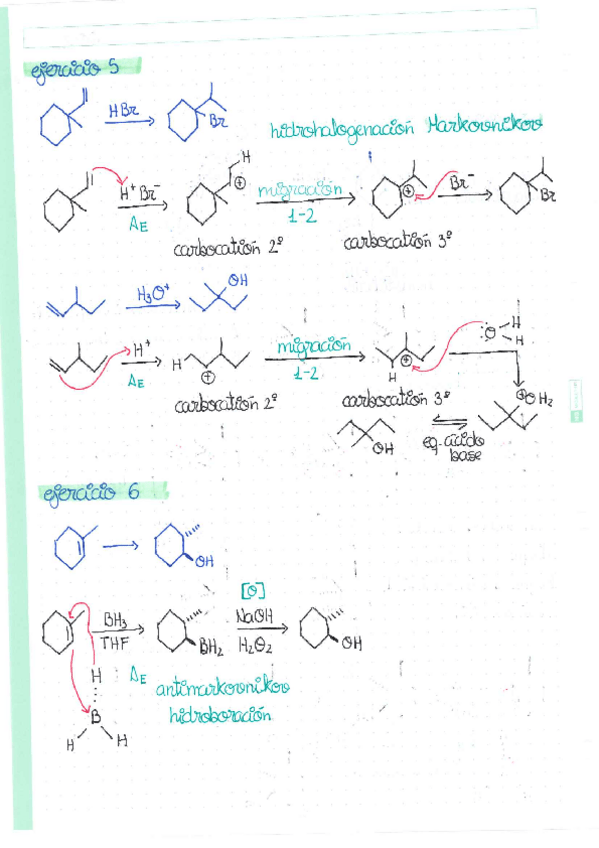 ejercicio 5
HBr
Br
hidrohalogenación Markovnikov
H
H⁺ Br⁻
⊕
migración
⊕
Br⁻
Br
AE
1-2
carbocatión 2º
carbocatión 3º
H₃O⁺
OH
H⁺
H
migración
⊕
O
H
H
AE
⊕
1-2
H
carbocatión 2º
carbocatión 3º
⊕OH₂
OH
eq. ácido
base
ejercicio 6
OH
[O]
BH₃
NaOH
THF
BH₂
H₂O₂
OH
H
AE
antimarkovnikov
B
hidroboración
H
H